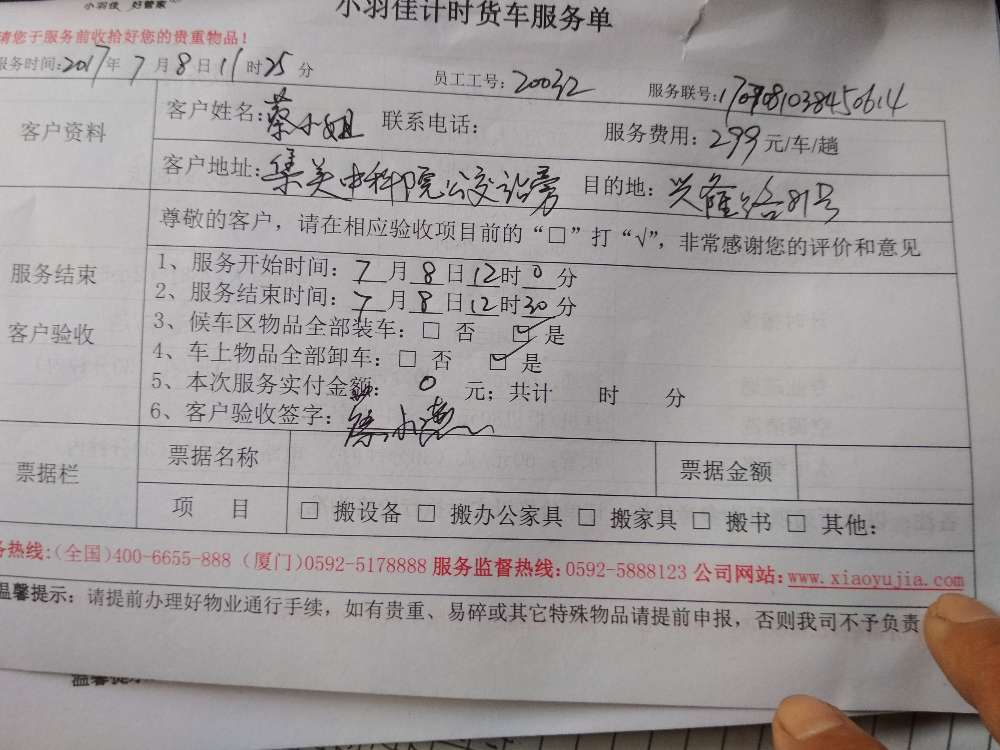 小羽佳 好管家
小羽佳计时货车服务单
请您于服务前收拾好您的贵重物品！
服务时间：2017年 7 月 8 日 11 时 25 分 员工工号：20032 服务联号：
客户资料
客户姓名：蔡小姐 联系电话： 服务费用：299元/车/趟
客户地址：集美中科院公交站旁 目的地：兴隆路81号
尊敬的客户，请在相应验收项目前的“□”打“√”，非常感谢您的评价和意见
服务结束
客户验收
1、服务开始时间：7 月 8 日 12 时 0 分
2、服务结束时间：7 月 8 日 12 时 30 分
3、候车区物品全部装车：□ 否 ☑ 是
4、车上物品全部卸车：□ 否 ☑ 是
5、本次服务实付金额： 0 元；共计 时 分
6、客户验收签字：
票据栏
票据名称 票据金额
项 目 □ 搬设备 □ 搬办公家具 □ 搬家具 □ 搬书 □ 其他：
务热线:(全国)400-6655-888 (厦门)0592-5178888 服务监督热线:0592-5888123 公司网站:www.xiaoyujia.com
温馨提示：请提前办理好物业通行手续，如有贵重、易碎或其它特殊物品请提前申报，否则我司不予负责
温馨提示